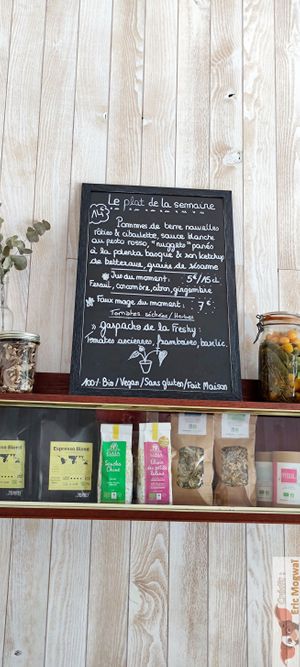 Le plat de la semaine
14€
Pommes de terre nouvelles
rôties & ciboulette, sauce blanche
au pesto rosso, "nuggets" pané
à la polenta basque & son ketchup
de betteraves, graines de sésame
Jus du moment : 5€/15cl
Fenouil, concombre, citron, gingembre
Faux mage du moment : 7€
Tomates séchées/Herbes
gaspacho de la Freshy :
tomates anciennes, framboises, basilic.
100% Bio/Vegan/Sans gluten/Fait Maison
Espresso Blend
Sencha
Chine
Eric Mogwai